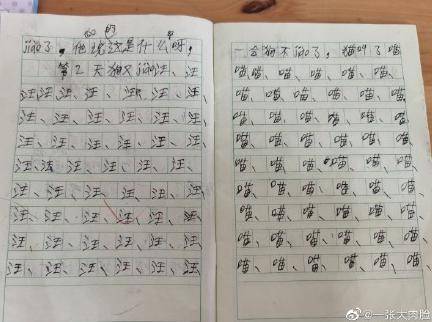 了。他说这是什么呀，
第2天狗又汪、汪、
汪汪、汪、汪、汪、汪、汪、
汪、汪、汪、汪、汪、汪、
汪、汪、汪、汪、汪、汪、
汪、汪、汪、汪、汪、汪、
汪、汪、汪、汪、汪、汪、
汪、汪、汪、汪、汪、汪、
汪、汪、汪、汪、汪、汪、
汪、汪、汪、汪、汪、汪、
一会狗不了，猫叫了喵
喵喵、喵、喵、喵、喵、
喵、喵、喵、喵、喵、喵、
喵、喵、喵、喵、喵、喵、
喵、喵、喵、喵、喵、喵、
喵、喵、喵、喵、喵、喵、
喵、喵、喵、喵、喵、喵、
喵、喵、喵、喵、喵、喵、
喵、喵、喵、喵、喵、喵、
喵、喵、喵、喵、喵、喵、
@一张大肉脸